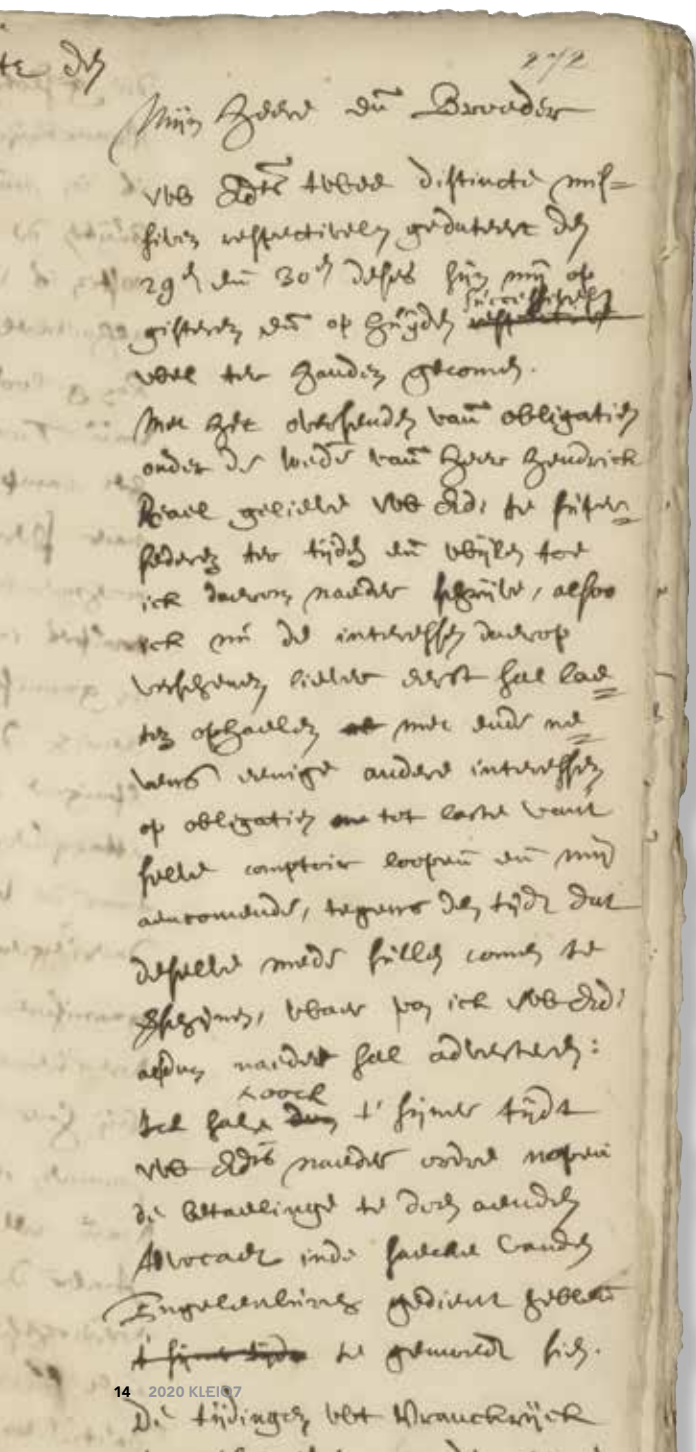 te den
272
Mijn Heere en̄ Broeder
vwe Edts twee distincte mis=
siven respectivelyck gedateert den
29en en̄ 30en deses sijn mij op
gisteren en̄ op huijden successivelyck
wel ter handen gecomen.
Met het oversenden vanū obligatien
onder de wede vanū Heer Hendrick
Reael gelieve vwe Ed: te super=
sederen ter tijden en̄ wijlen toe
ick daerom naeder schrijve, alsoo
ick nu de interessen daerop
verschenen liever eerst sal lae=
ten ophaelen met ende ne=
vens eenige andere interessen
op obligatien tot laste vant
selve comptoir loopen en̄ mij
aencomende, tegens den tijdt dat
deselve mede sullen comen te
verschijnen, waer van ick vwe Ed:
alsdan naeder sal adverteren:
Ick sal oock t' sijner tijdt
vwe Edts naeder ordre nopen
de betaelinge te doen aenden
Advocaet inde saecke vanden
Engelenburch gedient hebben
t' sijner tijdt te gemoedt sien.
14 2020 KLEIO7
De tijdingen wt Vranckrijck